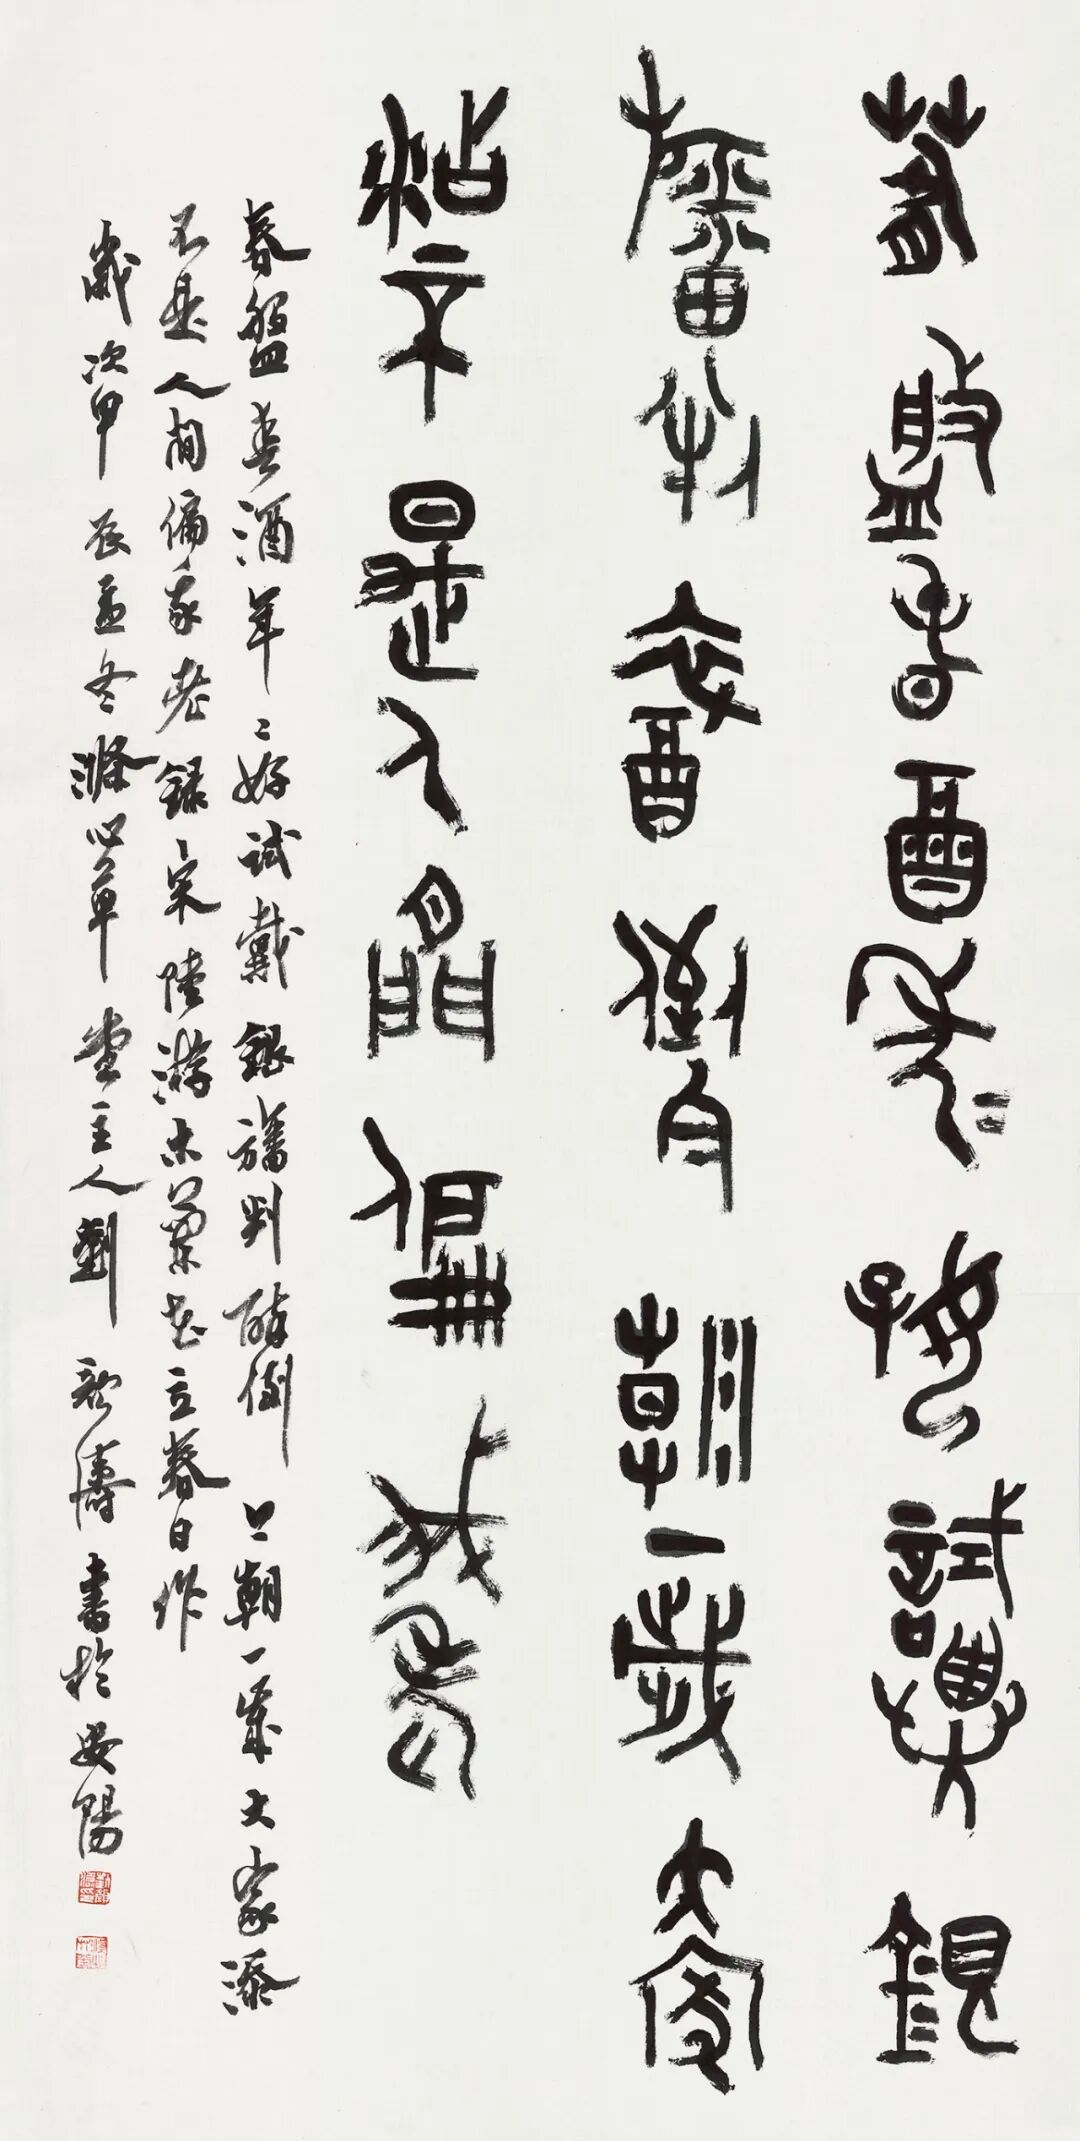 春盤春酒年=好試戴銀
旛判醉倒今朝一歲大家
添不是人間偏我老
春盤春酒年=好試戴銀旛判醉倒今朝一歲大家添
不是人間偏我老錄宋陸游木蘭花立春日作
歲次甲辰孟冬滌心草堂主人劉顏濤書於安陽